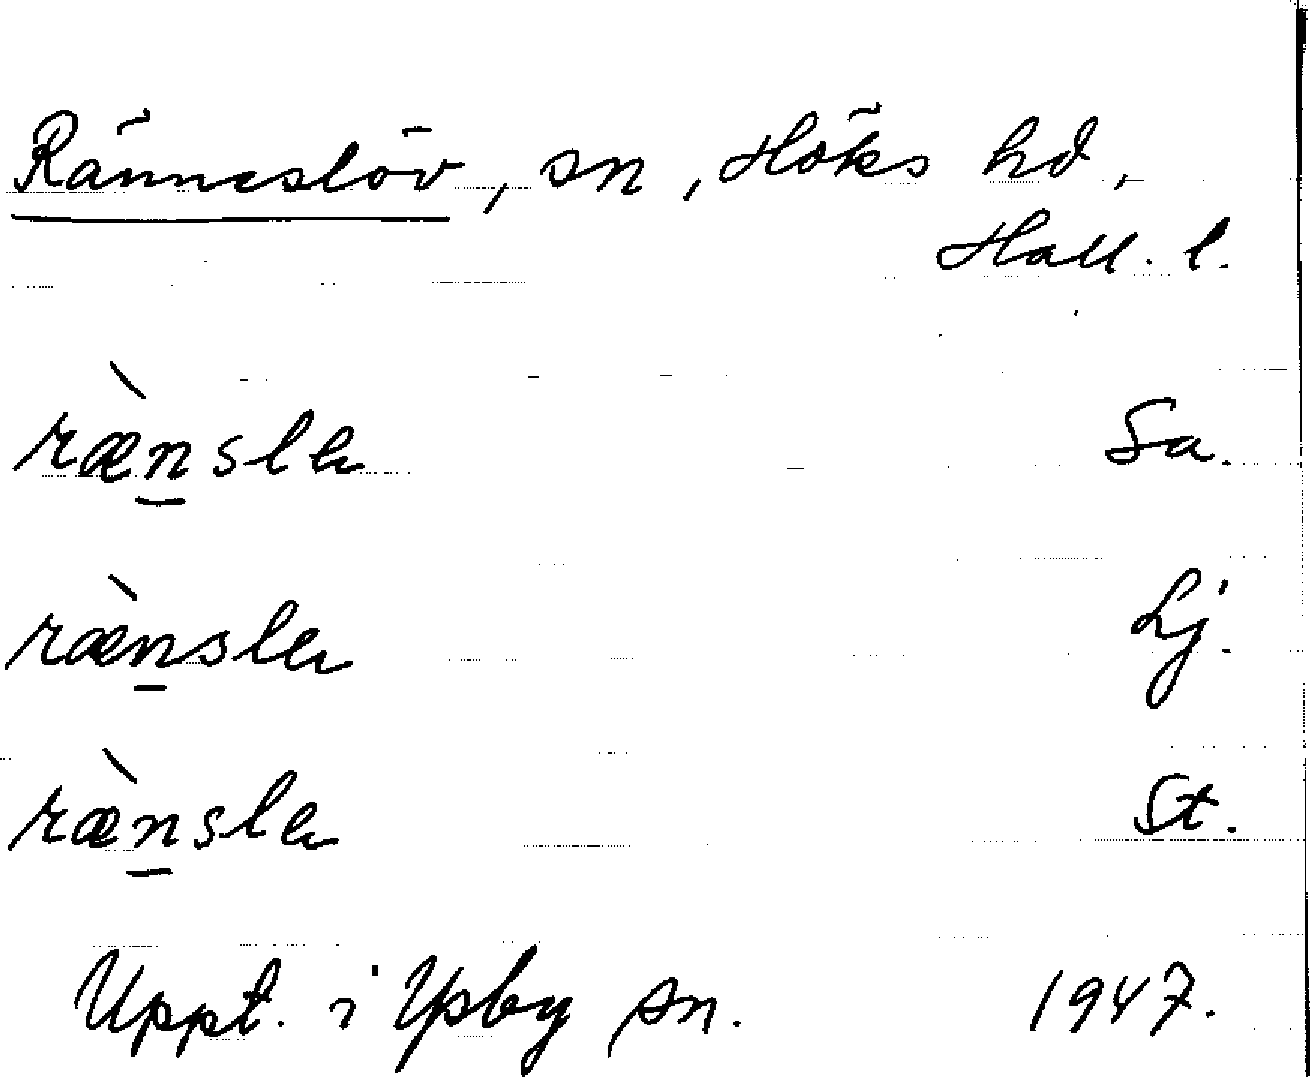 Ränneslöv, sn, Höks hd,
Hall. l.
ræ̀n̲slɐ Sa.
ræ̀n̲slɐ Lj.
ræ̀n̲slɐ St.
Uppt. i Ysby sn. 1947.